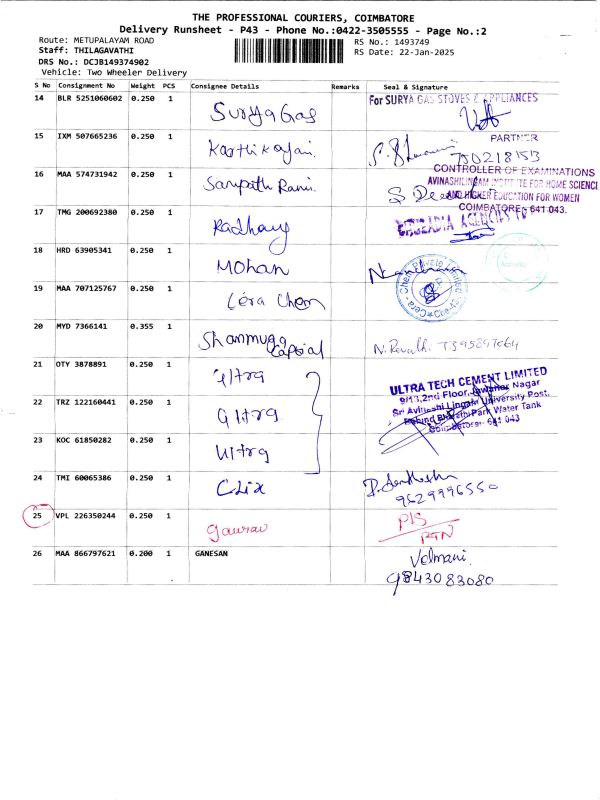 THE PROFESSIONAL COURIERS, COIMBATORE
Delivery Runsheet - P43 - Phone No.:0422-3505555 - Page No.:2
Route: METUPALAYAM ROAD
RS No.: 1493749
Staff: THILAGAVATHI
RS Date: 22-Jan-2025
DRS No.: DCJB149374902
Vehicle: Two Wheeler Delivery
S No Consignment No Weight PCS Consignee Details Remarks Seal & Signature
14 BLR 5251060602 0.250 1 Surya Gas For SURYA GAS STOVES & APPLIANCES
PARTNER
15 IXM 507665236 0.250 1 Karthikayini. 750218153
16 MAA 574731942 0.250 1 Sampath Rani. CONTROLLER OF EXAMINATIONS
AVINASHILINGAM INSTITUTE FOR HOME SCIENCE
AND HIGHER EDUCATION FOR WOMEN
COIMBATORE- 641 043.
17 TMG 200692380 0.250 1 Radhavy
18 HRD 63905341 0.250 1 Mohan
19 MAA 707125767 0.250 1 Cera Chem
20 MYD 7366141 0.355 1 Shanmuga Capsial N. Revathi
21 OTY 3878891 0.250 1 Ultra
ULTRA TECH CEMENT LIMITED
9/13,2nd Floor, Jawahar Nagar
Sri Avinashi Lingam University Post,
Behind Bharathi Park Water Tank
Coimbatore- 641 043
22 TRZ 122160441 0.250 1 Ultra
23 KOC 61850282 0.250 1 Ultra
24 TMI 60065386 0.250 1 Clix 9629996550
25 VPL 226350244 0.250 1 Gaurav PIS
RTN
26 MAA 866797621 0.200 1 GANESAN Velmani
9843083080